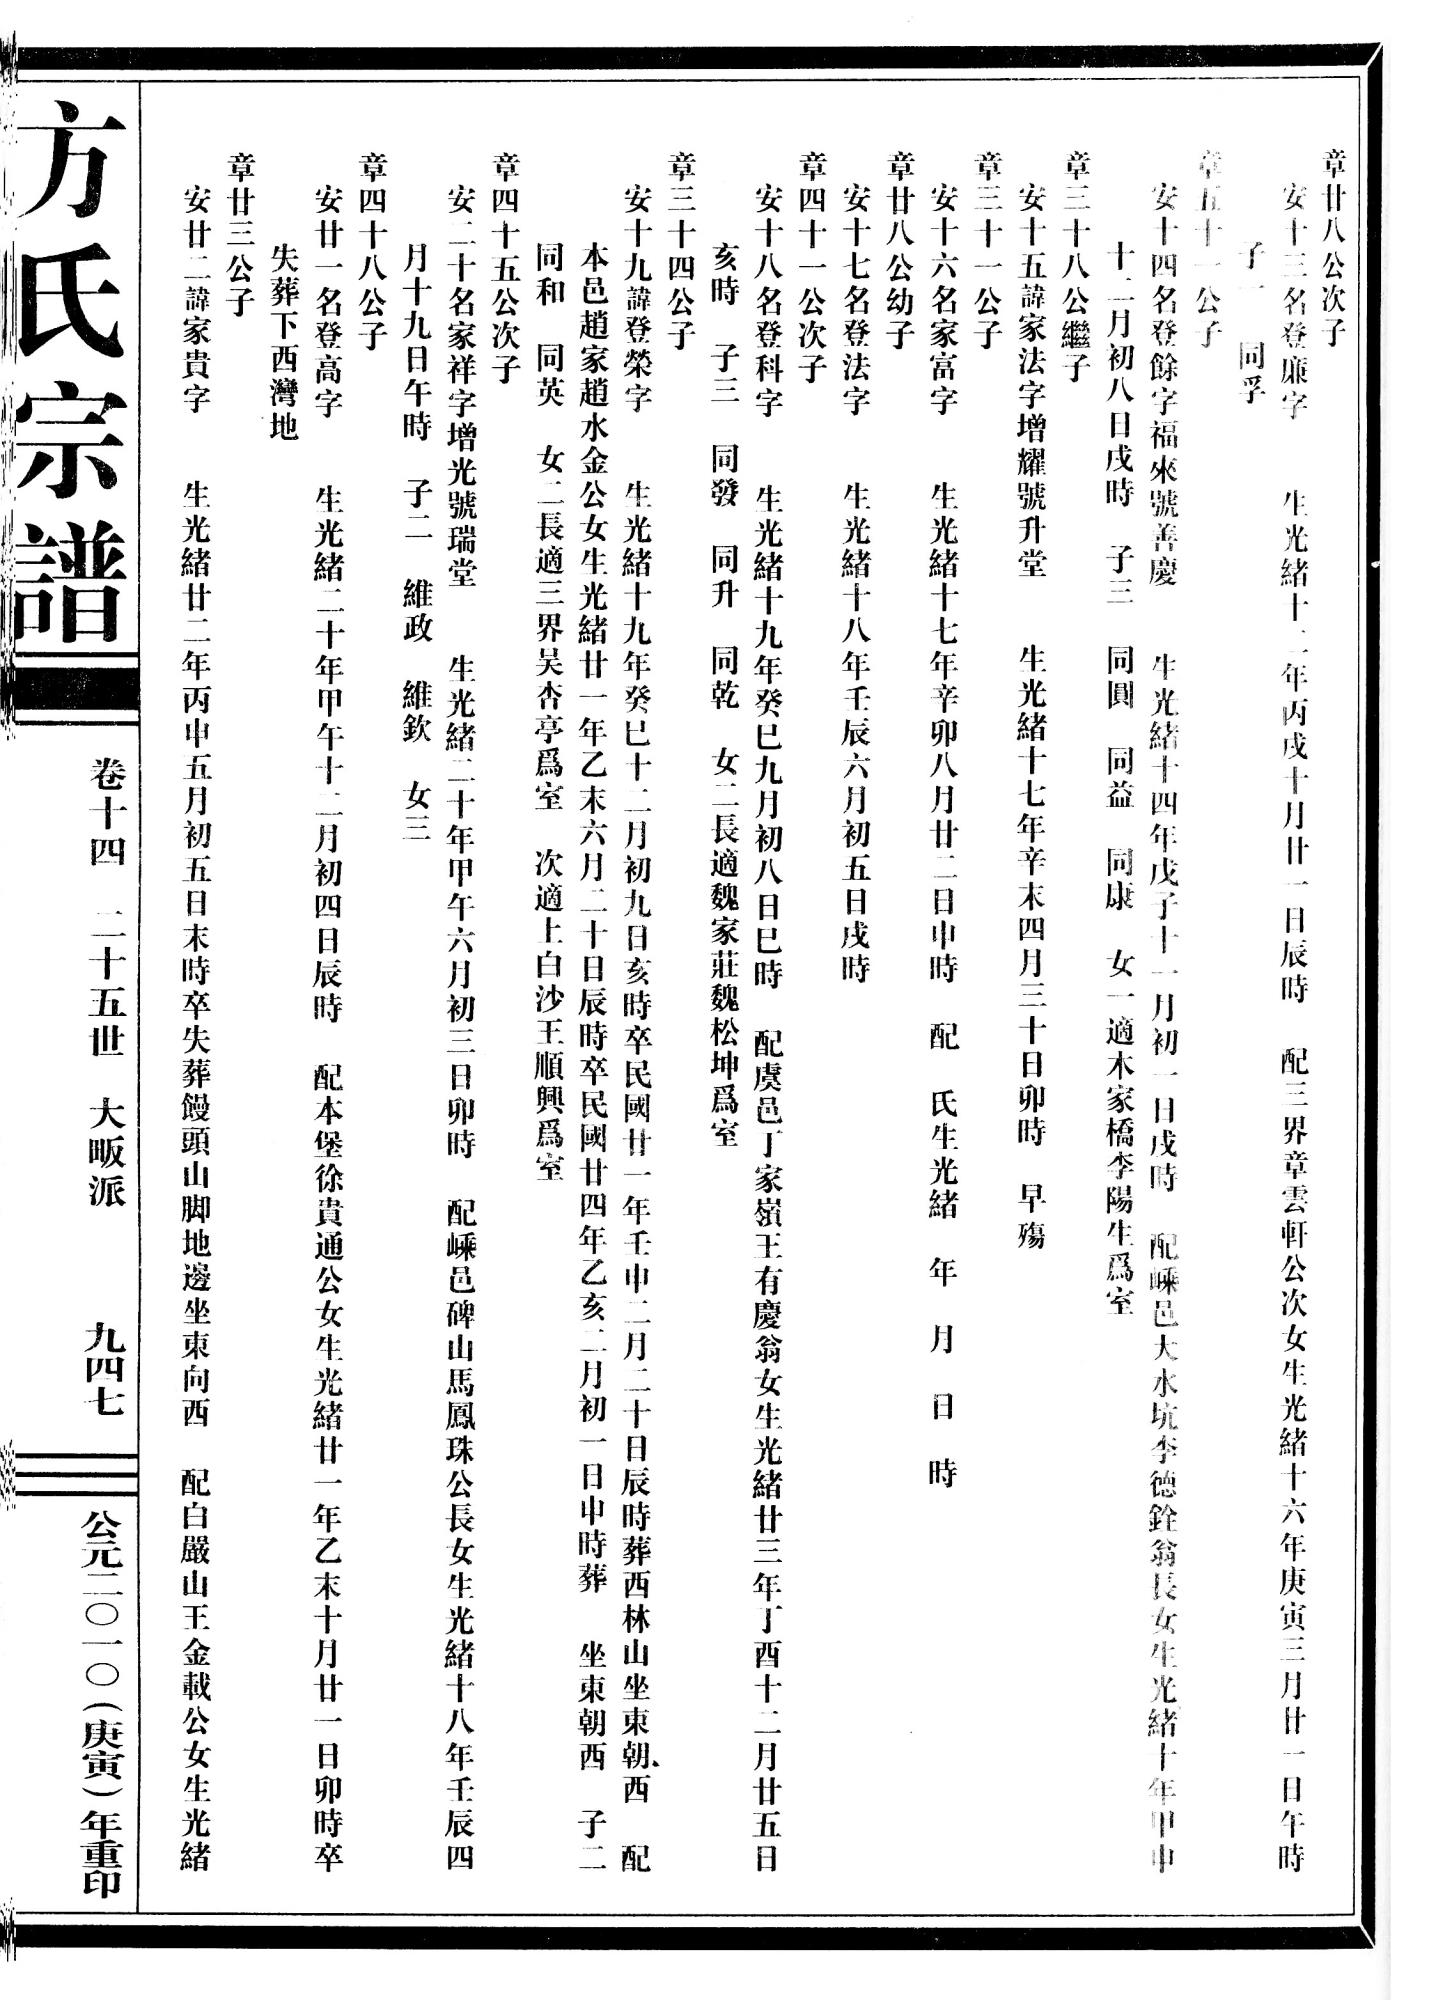 章廿八公次子
安十三名登廉字　生光緒十二年丙戌十月廿一日辰時　配三界章雲軒公次女生光緒十六年庚寅三月廿一日午時
子一　同孚
章五十一公子
安十四名登餘字福來號善慶　生光緒十四年戊子十一月初一日戌時　配嵊邑大水坑李德銓翁長女生光緒十年甲申
十二月初八日戌時　子三　同圓　同益　同康　女一適木家橋李陽生爲室
章三十八公繼子
安十五諱家法字增耀號升堂　生光緒十七年辛未四月三十日卯時　早殤
章三十一公子
安十六名家富字　生光緒十七年辛卯八月廿二日申時　配　氏生光緒　年　月　日　時
章廿八公幼子
安十七名登法字　生光緒十八年壬辰六月初五日戌時
章四十一公次子
安十八名登科字　生光緒十九年癸巳九月初八日巳時　配虞邑丁家嶺王有慶翁女生光緒廿三年丁酉十二月廿五日
亥時　子三　同發　同升　同乾　女二長適魏家莊魏松坤爲室
章三十四公子
安十九諱登榮字　生光緒十九年癸巳十二月初九日亥時卒民國廿一年壬申二月二十日辰時葬西林山坐東朝西　配
本邑趙家趙水金公女生光緒廿一年乙未六月二十日辰時卒民國廿四年乙亥二月初一日申時葬　坐東朝西　子二
同和　同英　女二長適三界吴杏亭爲室　次適上白沙王順興爲室
章四十五公次子
安二十名家祥字增光號瑞堂　生光緒二十年甲午六月初三日卯時　配嵊邑碑山馬鳳珠公長女生光緒十八年壬辰四
月十九日午時　子二　維政　維欽　女三
章四十八公子
安廿一名登高字　生光緒二十年甲午十二月初四日辰時　配本堡徐貴通公女生光緒廿一年乙未十月廿一日卯時卒
失葬下西灣地
章廿三公子
安廿二諱家貴字　生光緒廿二年丙申五月初五日未時卒失葬饅頭山脚地邊坐東向西　配白嚴山王金載公女生光緒
方氏宗譜
卷十四　二十五世　大畈派　九四七
公元二〇一〇（庚寅）年重印